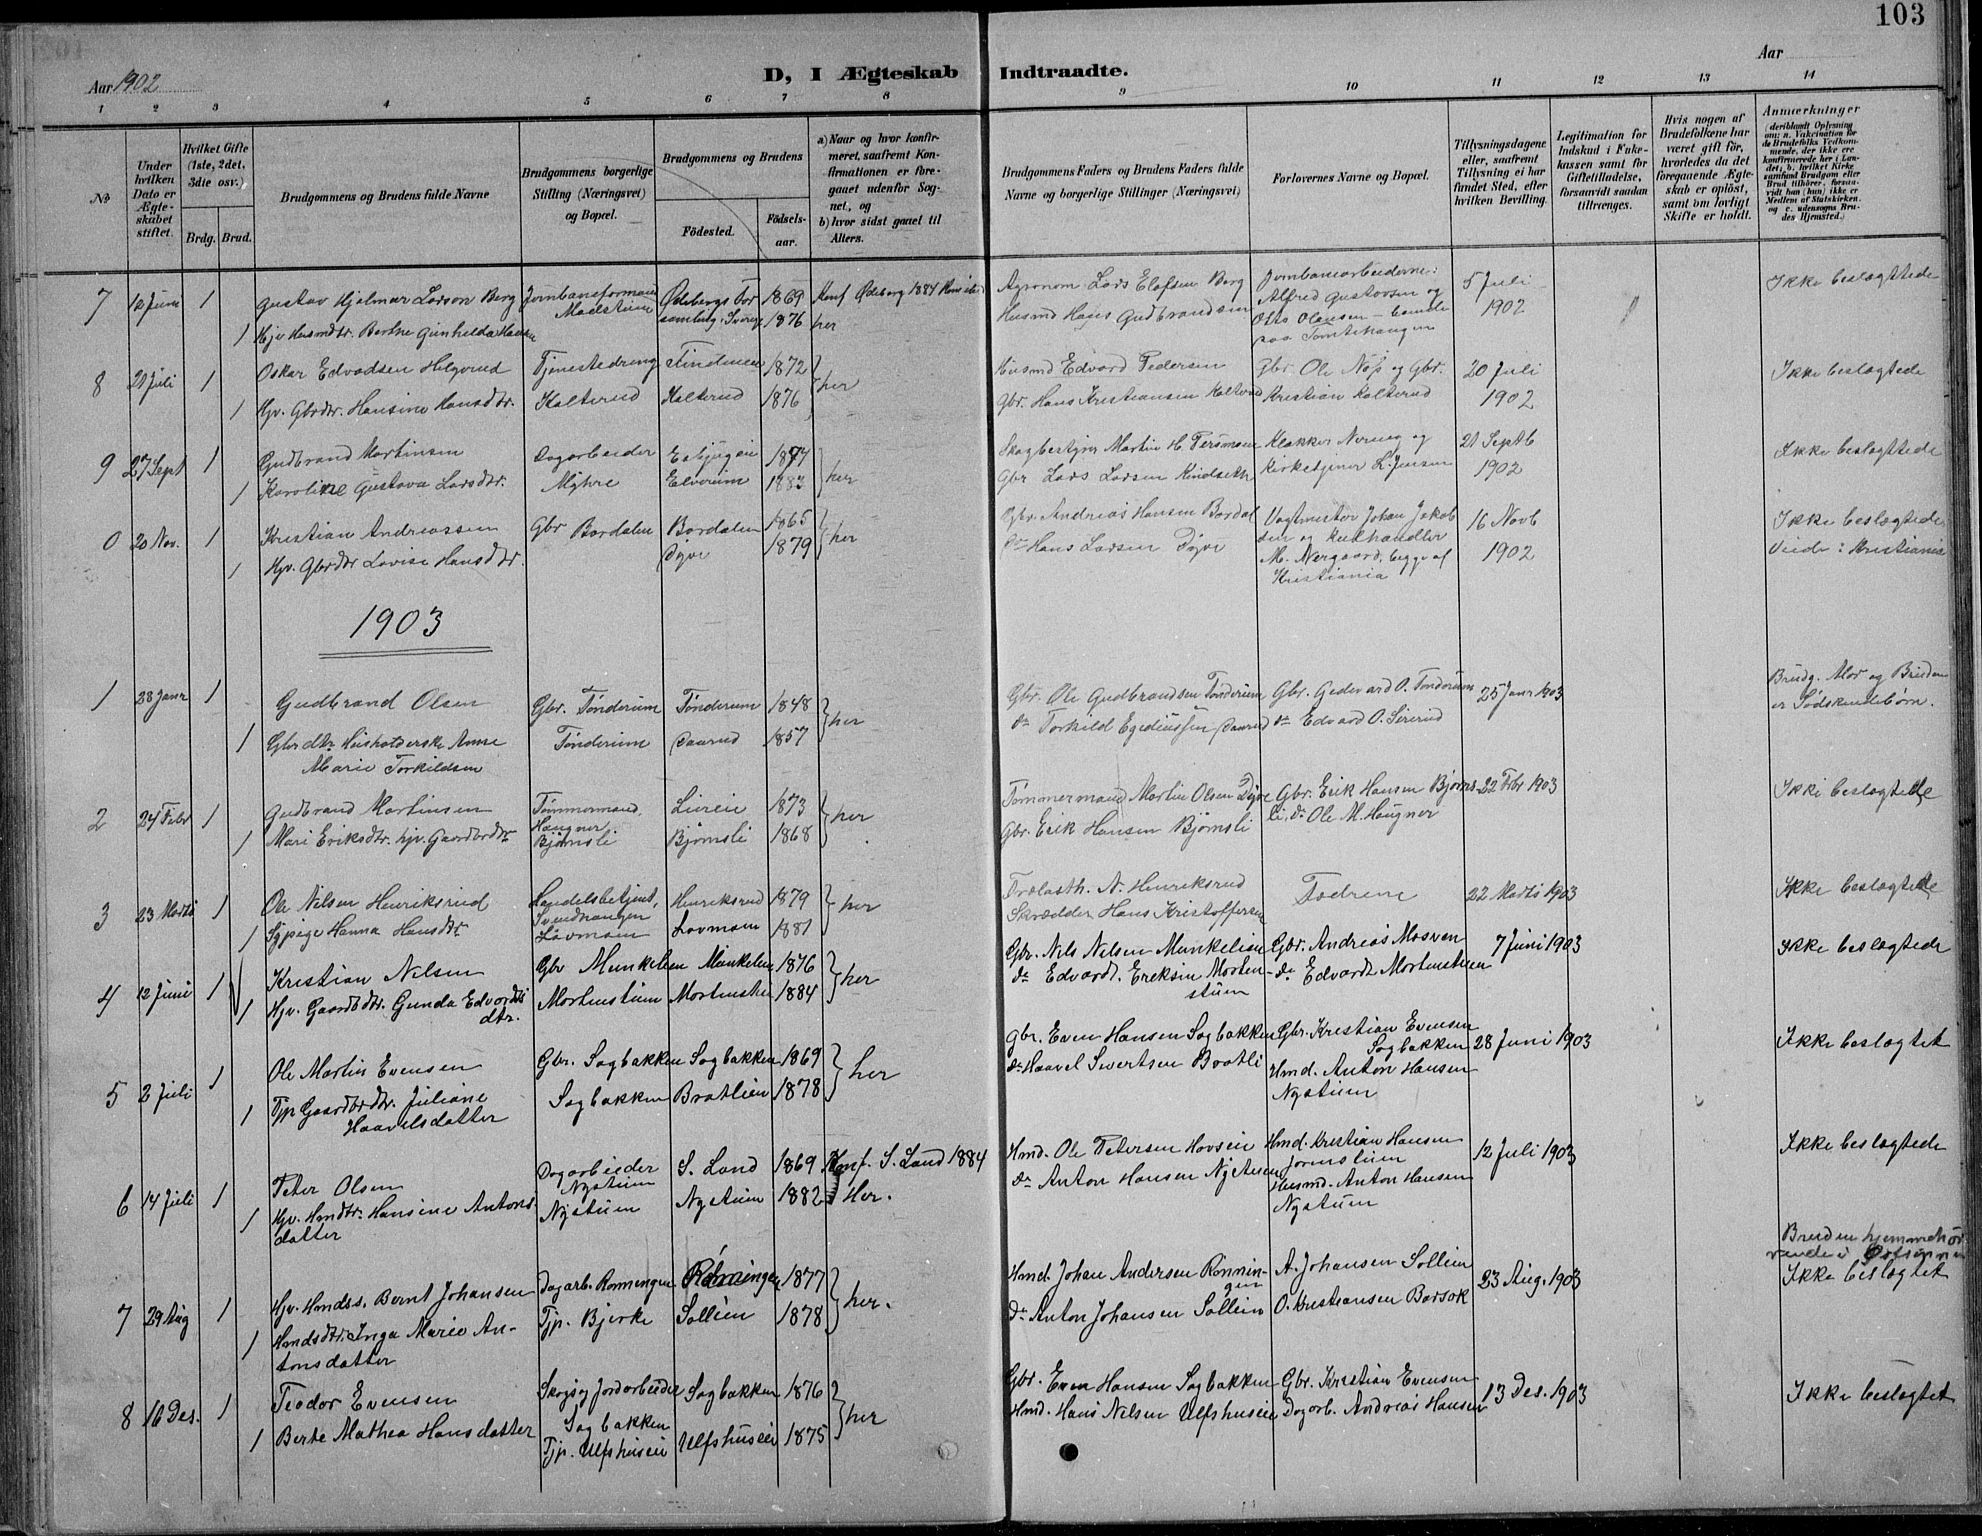 103
Aar 1902
D, I Ægteskab Indtraadte.
Aar
1 2 3 4 5 6 7 8 9 10 11 12 13 14
No
Under hvilken Dato er Ægteskabet stiftet.
Hvilket Gifte (1ste, 2det, 3die osv.)
Brdg. Brud.
Brudgommens og Brudens fulde Navne
Brudgommens borgerlige Stilling (Næringsvei) og Bopæl.
Brudgommens og Brudens
Födested. Födselsaar.
a) Naar og hvor konfirmeret, saafremt Konfirmationen er foregaaet udenfor Sognet, og
b) hvor sidst gaaet til Alters.
Brudgommens Faders og Brudens Faders fulde Navne og borgerlige Stillinger (Næringsvei)
Forlovernes Navne og Bopæl.
Tillysningsdagene eller, saafremt Tillysning ei har fundet Sted, efter hvilken Bevilling.
Legitimation for Indskud i Enkekassen samt for Giftetilladelse, forsaavidt saadan tiltrænges.
Hvis nogen af Brudefolkene har været gift för, hvorledes da det foregaaende Ægteskab er oplöst, samt om lovligt Skifte er holdt.
Anmærkninger (deriblandt Oplysning om: a. Vakcination for de Brudefolks Vedkommende, der ikke ere konfirmerede her i Landet, b. hvilket Kirkesamfund Brudgom eller Brud tilhörer, forsaavidt han (hun) ikke er Medlem af Statskirken, og c. udensogns Brudes Hjemsted.)
7 12 Juni 1 Gustav Hjalmar Larson Berg Jernbaneformann Ödebergs For 1869 Konf Ödeberg 1884 Agronom Lars Elofsen Berg Jernbanearbeiderne: 5 Juli Ikke beslægttede
Madstuen samling i Sverige Alfred Gustavsen og
1 Hjv Husmdtr. Berthe Gunhilda Hansen 1876 her Husmd Hans Gudbrandsen Otto Olausen - begge 1902
paa Tomtehaugen
8 21 Juli 1 Oskar Edvadsen Helgerud Tjenestedreng Findmoen 1872 Husmd Edvard Pedersen Gbr. Ole Næss og Gbr. 20 Juli Ikke beslægtede
1 Hjv. Gbrdtr. Hansine Hansdtr. Kalterud Kalterud 1876 her Gbr. Hans Kristiansen Kalterud Kristian Kalterud 1902
9 27 Sept 1 Gudbrand Martinsen Dagarbeider 1874 Skogbestyrer Martin H. Klokker Nerung og 21 Septb Ikke beslægttede
1 Karoline Gustava Larsdtr. Myhre Elverum 1883 her Gbr Lars Larsen Kindseth Kirketjener L. Jensen 1902
0 20 Nov. 1 Kristian Andreassen Gbr Bardalen Bardalen 1865 Gbr Andreas Hansen Bardal Vagtmester Johan Jakob 16 Novb Ikke beslægtede
sen og Kulhandler Viede i Kristiania
1 Hjv. Gbrdtr Lovise Hansdtr. Dyve 1879 her Do Hans Larsen Dyve M. Nergaard, begge af 1902
Kristiania
1903
1 28 Janr 1 Gudbrand Olsen Gbr. Tønderum Tønderum 1848 Gbr. Ole Gudbrandsen Tønderum Gbr. Gedevard O. Tønderum 25 Janr 1903 Brudg. Mor og Bruden
er Södskendebørn.
1 Gbr dtr Husholderske Anne Tønderum Daarud 1857 her do Torkild Egediussen Daarud do Edvard O. Sererud
Marie Torkildsen
2 24 Febr 1 Gudbrand Martinsen Tømmermand, Liveie 1873 Tømmermand Martin Olsen Dyve Gbr. Erik Hansen Bjørns- 22 Febr 1903 Ikke beslægtede
Haugner
1 Mari Eriksdtr. hjv. Gaardbrdtr Bjørnsli Bjørnsli 1868 her Gbr. Erik Hansen Bjørnsli li, do Ole M. Haugner
3 23 Marts 1 Ole Nilsen Henriksrud Handelsbetjent, Henriksrud 1879 Trælasth. N. Henriksrud Fædrene 22 Marts 1903 Ikke beslægtede
Svendhaugen
1 Sypige Hanna Hansdtr Lavmam Lavmam 1881 her Skrædder Hans Kristoffersen
4 12 Juni 1 Kristian Nilsen Gbr Munkelien Munkelien 1876 Gbr. Nils Nilsen Munkelien Gbr. Andreas Mosven 7 Juni 1903 Ikke beslægtede
1 Hjv. Gaardbdtr. Gunda Edvards Mortenstuen Mortenstue 1884 her do Edvardt. Ereksen Morten- do Edvardt Mortenstuen
dtr. stuen
5 2 Juli 1 Ole Martin Evensen Gbr. Sagbakken Sagbakken 1869 Gbr. Even Hansen Sagbakken Gbr. Kristian Evensen 28 Juni 1903 Ikke beslægtet
Sagbakken
1 Tjp Gaardbrdtr. Juliane Sagbakken Bratlien 1878 her do Haavel Sivertsen Bratli Hmd. Anton Hansen
Haavelsdatter Nystuen
6 14 Juli 1 Peter Olsen Dagarbeider S. Land 1869 Konf. S. Land 1884 Hmd. Ole Petersen Hovseie Hmd. Kristian Hansen 12 Juli 1903 Ikke beslægtede
Nystuen Jørnstuen
1 Hjv. Hmdtr. Hansine Antons- Nystuen Nystuen 1882 Her. do Anton Hansen Nystuen Husmd. Anton Hansen
datter Nystuen
7 29 Aug 1 Hjv. Hmdss. Bernt Johansen Dagarb. Rønningen Rønningen 1877 Hmd. Johan Andersen Rønnin- A. Johansen Sollien 23 Aug. 1903 Bruden hjemmehør
gen rende i
1 Hmdsdtr. Inga Marie An- Tjp. Bjerke Sollien 1878 her. Do Anton Johansen Sollien O. Kristiansen Barsok Ikke beslægtet
tonsdatter
8 16 Des. 1 Teodor Evensen Skogs og Jordarbeider Sagbakken 1876 Gbr. Even Hansen Sagbakken Gbr. Kristian Evensen 13 Des. 1903 Ikke beslægtet
Sagbakken
1 Berte Mathea Hansdatter Tjp. Ulfshuseie Ulfshuseie 1875 her Hmd. Hans Nilsen Ulfshuseie Dagarb. Andreas Hansen